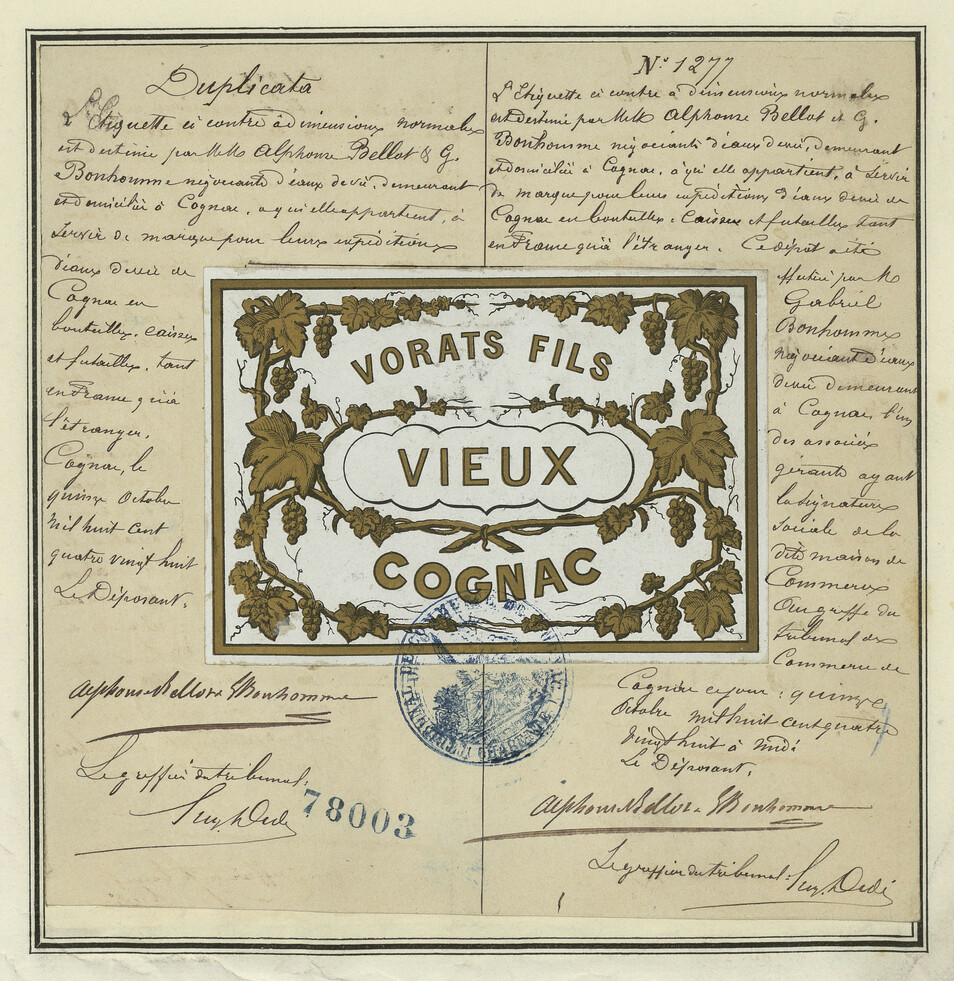 Duplicata
L'Etiquette ci contre à dimensions normales
est destinée par MM. Alphonse Bellot & G.
Bonhomme négociants d'eaux de vie, demeurant
et domiciliés à Cognac, à qui elle appartient, à
servir de marque pour leurs expéditions
d'eaux de vie de
Cognac en
bouteilles, caisses
et futailles, tant
en France qu'à
l'étranger.
Cognac, le
quinze Octobre
mil huit cent
quatre vingt huit
Le Déposant,
Alphonse Bellot & G Bonhomme
Le greffier du tribunal,
78003
N° 1277
L'Etiquette ci contre à dimensions normales
est destinée par MM. Alphonse Bellot et G.
Bonhomme négociants d'eaux de vie, demeurant
et domiciliés à Cognac, à qui elle appartient, à servir
de marque pour leurs expéditions d'eaux de vie de
Cognac en bouteilles, caisses et futailles tant
en France qu'à l'étranger. Ce dépôt a été
effectué par M.
Gabriel
Bonhomme
négociant d'eaux
de vie demeurant
à Cognac l'un
des associés
gérants ayant
la signature
sociale de la
dite maison de
Commerce
au greffe du
tribunal de
Commerce de
Cognac ce jour : quinze
Octobre mil huit cent quatre
vingt huit à midi
Le Déposant,
Alphonse Bellot & G Bonhomme
Le greffier du tribunal:
VORATS FILS
VIEUX
COGNAC
TRIBUNAL DE COMMERCE DE COGNAC
CHARENTE